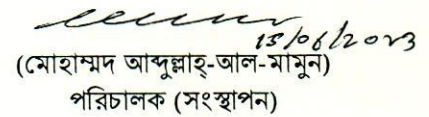 15/06/2023
(মোহাম্মদ আব্দুল্লাহ্-আল-মামুন)
পরিচালক (সংস্থাপন)